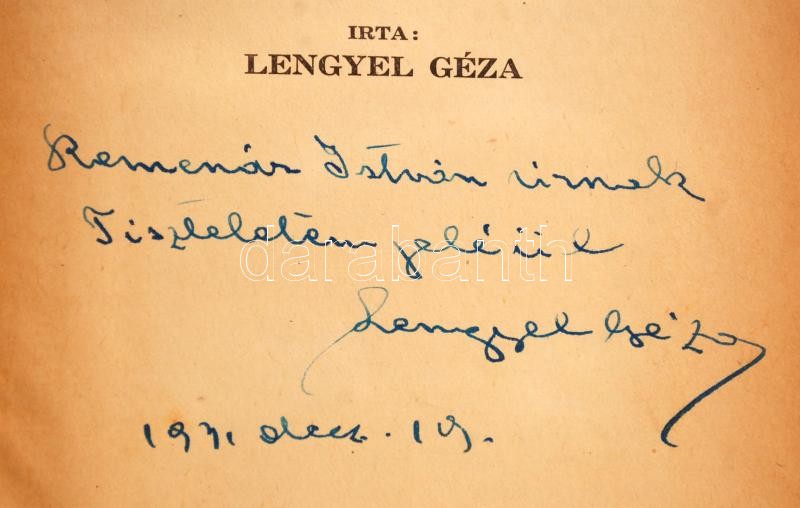 IRTA:
LENGYEL GÉZA
Remenár István úrnak
Tiszteletem jeléül
darabanth
Lengyel Géza
1931 dec. 19.